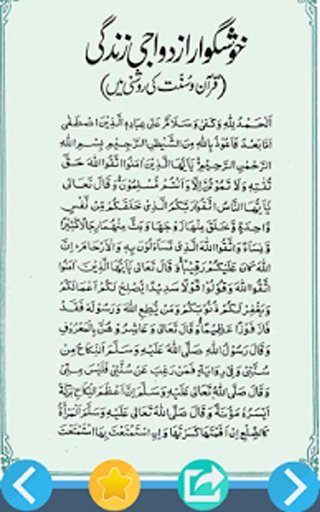 خوشگوار ازدواجی زندگی
(قرآن و سُنّت کی روشنی میں)
اَلْحَمْدُ لِلّٰهِ وَكَفٰى وَسَلَامٌ عَلٰى عِبَادِهِ الَّذِيْنَ اصْطَفٰى
اَمَّا بَعْدُ فَاَعُوْذُ بِاللّٰهِ مِنَ الشَّيْطٰنِ الرَّجِيْمِ بِسْمِ اللّٰهِ
الرَّحْمٰنِ الرَّحِيْمِ يٰاَيُّهَا الَّذِيْنَ اٰمَنُوا اتَّقُوا اللّٰهَ حَقَّ
تُقٰتِهٖ وَلَا تَمُوْتُنَّ اِلَّا وَاَنْتُمْ مُّسْلِمُوْنَ وَقَالَ تَعَالٰى
يٰاَيُّهَا النَّاسُ اتَّقُوْا رَبَّكُمُ الَّذِيْ خَلَقَكُمْ مِّنْ نَّفْسٍ
وَّاحِدَةٍ وَّخَلَقَ مِنْهَا زَوْجَهَا وَبَثَّ مِنْهُمَا رِجَالًا كَثِيْرًا
وَّنِسَاءً وَاتَّقُوا اللّٰهَ الَّذِيْ تَسَاءَلُوْنَ بِهٖ وَالْاَرْحَامَ اِنَّ
اللّٰهَ كَانَ عَلَيْكُمْ رَقِيْبًا وَقَالَ تَعَالٰى يٰاَيُّهَا الَّذِيْنَ اٰمَنُوا
اتَّقُوا اللّٰهَ وَقُوْلُوْا قَوْلًا سَدِيْدًا يُّصْلِحْ لَكُمْ اَعْمَالَكُمْ
وَيَغْفِرْ لَكُمْ ذُنُوْبَكُمْ وَمَنْ يُّطِعِ اللّٰهَ وَرَسُوْلَهٗ فَقَدْ
فَازَ فَوْزًا عَظِيْمًا وَقَالَ تَعَالٰى وَعَاشِرُوْهُنَّ بِالْمَعْرُوْفِ
وَقَالَ رَسُوْلُ اللّٰهِ صَلَّى اللّٰهُ عَلَيْهِ وَسَلَّمَ اَلنِّكَاحُ مِنْ
سُنَّتِيْ وَفِيْ رِوَايَةٍ فَمَنْ رَغِبَ عَنْ سُنَّتِيْ فَلَيْسَ مِنِّيْ
وَقَالَ صَلَّى اللّٰهُ تَعَالٰى عَلَيْهِ وَسَلَّمَ اِنَّ اَعْظَمَ النِّكَاحِ بَرَكَةً
اَيْسَرُهٗ مَؤُنَةً وَقَالَ صَلَّى اللّٰهُ تَعَالٰى عَلَيْهِ وَسَلَّمَ اَلْمَرْأَةُ
كَالضِّلَعِ اِنْ اَقَمْتَهَا كَسَرْتَهَا وَاِنِ اسْتَمْتَعْتَ بِهَا اسْتَمْتَعْتَ